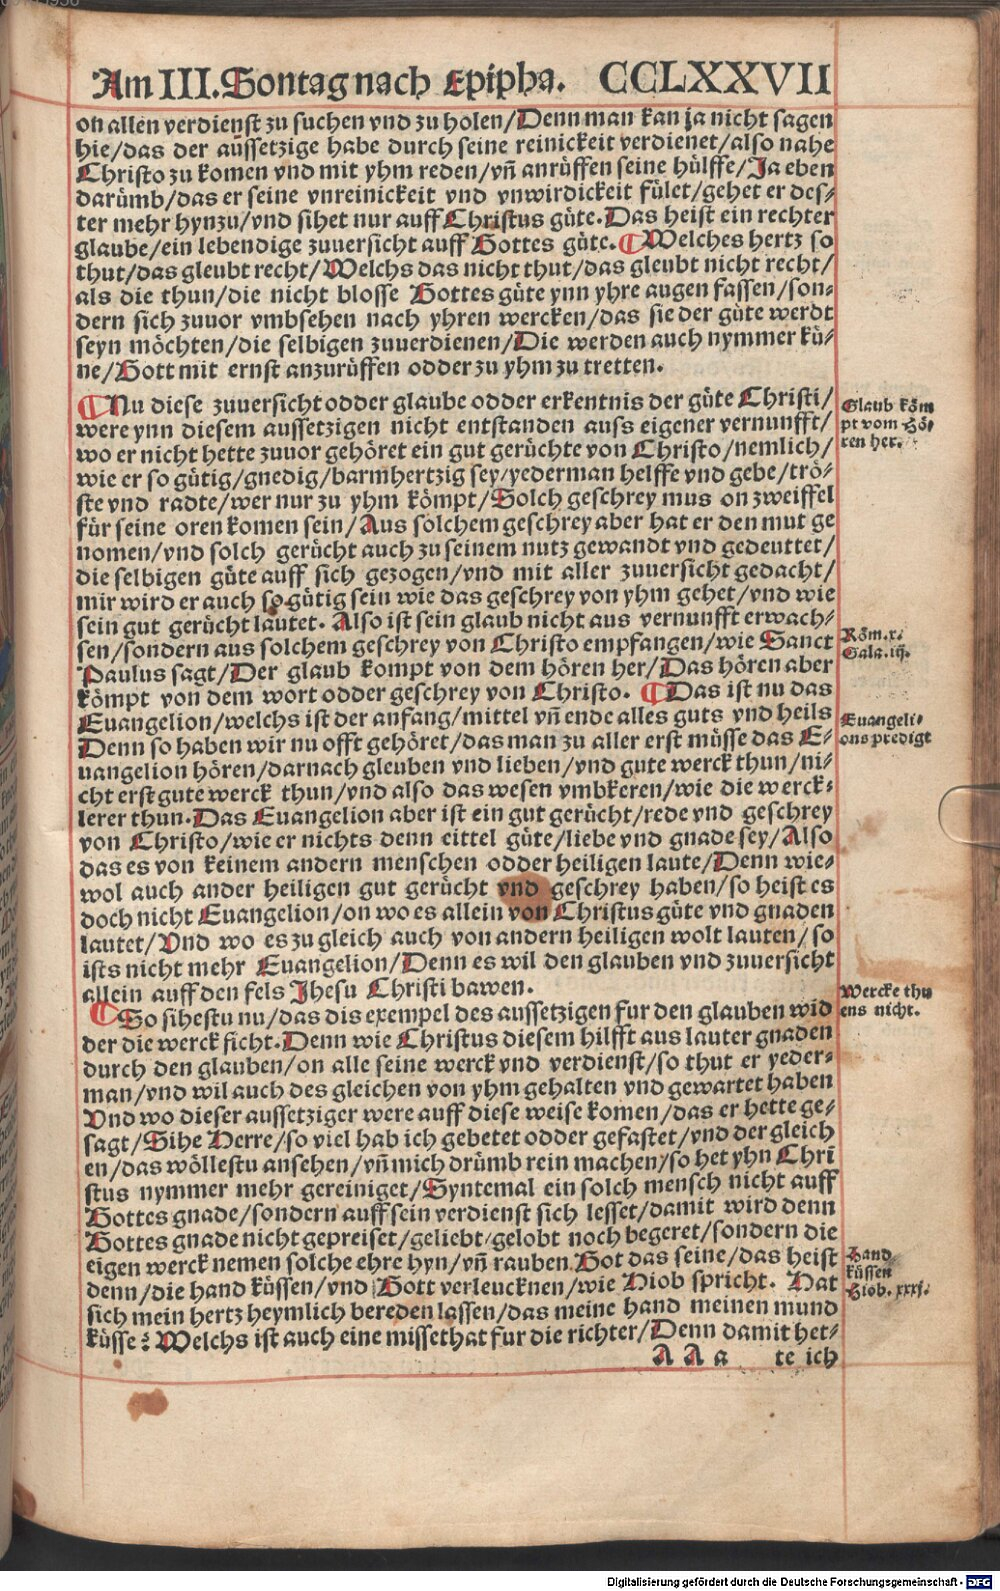 Am III. Sontag nach Epipha. CCLXXVII
on allen verdienst zu suchen vnd zu holen/Denn man kan ja nicht sagen
hie/das der aussetzige habe durch seine reinickeit verdienet/also nahe
Christo zu komen vnd mit yhm reden/vñ anrüffen seine hülffe/Ja eben
darümb/das er seine vnreinickeit vnd vnwirdickeit fület/gehet er des-
ter mehr hynzu/vnd sihet nur auff Christus güte. Das heist ein rechter
glaube/ein lebendige zuuersicht auff Gottes güte. ¶ Welches hertz so
thut/das gleubt recht/Welchs das nicht thut/das gleubt nicht recht/
als die thun/die nicht blosse Gottes güte ynn yhre augen fassen/son-
dern sich zuuor vmbsehen nach yhren wercken/das sie der güte werdt
seyn möchten/die selbigen zuuerdienen/Die werden auch nymmer kü-
ne/Gott mit ernst anzurüffen odder zu yhm zu tretten.
¶ Nu diese zuuersicht odder glaube odder erkentnis der güte Christi/
were ynn diesem aussetzigen nicht entstanden auss eigener vernunfft/
wo er nicht hette zuuor gehöret ein gut gerüchte von Christo/nemlich/
wie er so gütig/gnedig/barmhertzig sey/yederman helffe vnd gebe/trö-
ste vnd radte/wer nur zu yhm kömpt/Solch geschrey mus on zweiffel
für seine oren komen sein/Aus solchem geschrey aber hat er den mut ge
nomen/vnd solch gerücht auch zu seinem nutz gewandt vnd gedeuttet/
die selbigen güte auff sich gezogen/vnd mit aller zuuersicht gedacht/
mir wird er auch so gütig sein wie das geschrey von yhm gehet/vnd wie
sein gut gerücht lautet. Also ist sein glaub nicht aus vernunfft erwach-
sen/sondern aus solchem geschrey von Christo empfangen/wie Sanct
Paulus sagt/Der glaub kompt von dem hören her/Das hören aber
kömpt von dem wort odder geschrey von Christo. ¶ Das ist nu das
Euangelion/welchs ist der anfang/mittel vñ ende alles guts vnd heils
Denn so haben wir nu offt gehöret/das man zu aller erst müsse das E-
uangelion hören/darnach gleuben vnd lieben/vnd gute werck thun/ni-
cht erst gute werck thun/vnd also das wesen vmbkeren/wie die werck-
lerer thun. Das Euangelion aber ist ein gut gerücht/rede vnd geschrey
von Christo/wie er nichts denn eittel güte/liebe vnd gnade sey/Also
das es von keinem andern menschen odder heiligen laute/Denn wie-
wol auch ander heiligen gut gerücht vnd geschrey haben/so heist es
doch nicht Euangelion/on wo es allein von Christus güte vnd gnaden
lautet/Vnd wo es zu gleich auch von andern heiligen wolt lauten/so
ists nicht mehr Euangelion/Denn es wil den glauben vnd zuuersicht
allein auff den fels Jhesu Christi bawen.
¶ So sihestu nu/das dis exempel des aussetzigen fur den glauben wid
der die werck ficht. Denn wie Christus diesem hilfft aus lauter gnaden
durch den glauben/on alle seine werck vnd verdienst/so thut er yeder-
man/vnd wil auch des gleichen von yhm gehalten vnd gewartet haben
Vnd wo dieser aussetziger were auff diese weise komen/das er hette ge-
sagt/Sihe Herre/so viel hab ich gebetet odder gefastet/vnd der gleich
en/das wöllestu ansehen/vñ mich drümb rein machen/so het yhn Chri
stus nymmer mehr gereiniget/Syntemal ein solch mensch nicht auff
Gottes gnade/sondern auff sein verdienst sich lesset/damit wird denn
Gottes gnade nicht gepreiset/geliebt/gelobt noch begeret/sondern die
eigen werck nemen solche ehre hyn/vñ rauben Got das seine/das heist
denn/die hand küssen/vnd Gott verleucknen/wie Hiob spricht. Hat
sich mein hertz heymlich bereden lassen/das meine hand meinen mund
küsse? Welchs ist auch eine missethat fur die richter/Denn damit het-
A A a te ich
Glaub köm
pt vom Hö-
ren her.
Röm. x.
Gala. iij.
Euangeli-
ons predigt
Wercke thu
ens nicht.
Hand
küssen
Hiob. xxxj.
Digitalisierung gefördert durch die Deutsche Forschungsgemeinschaft - DFG